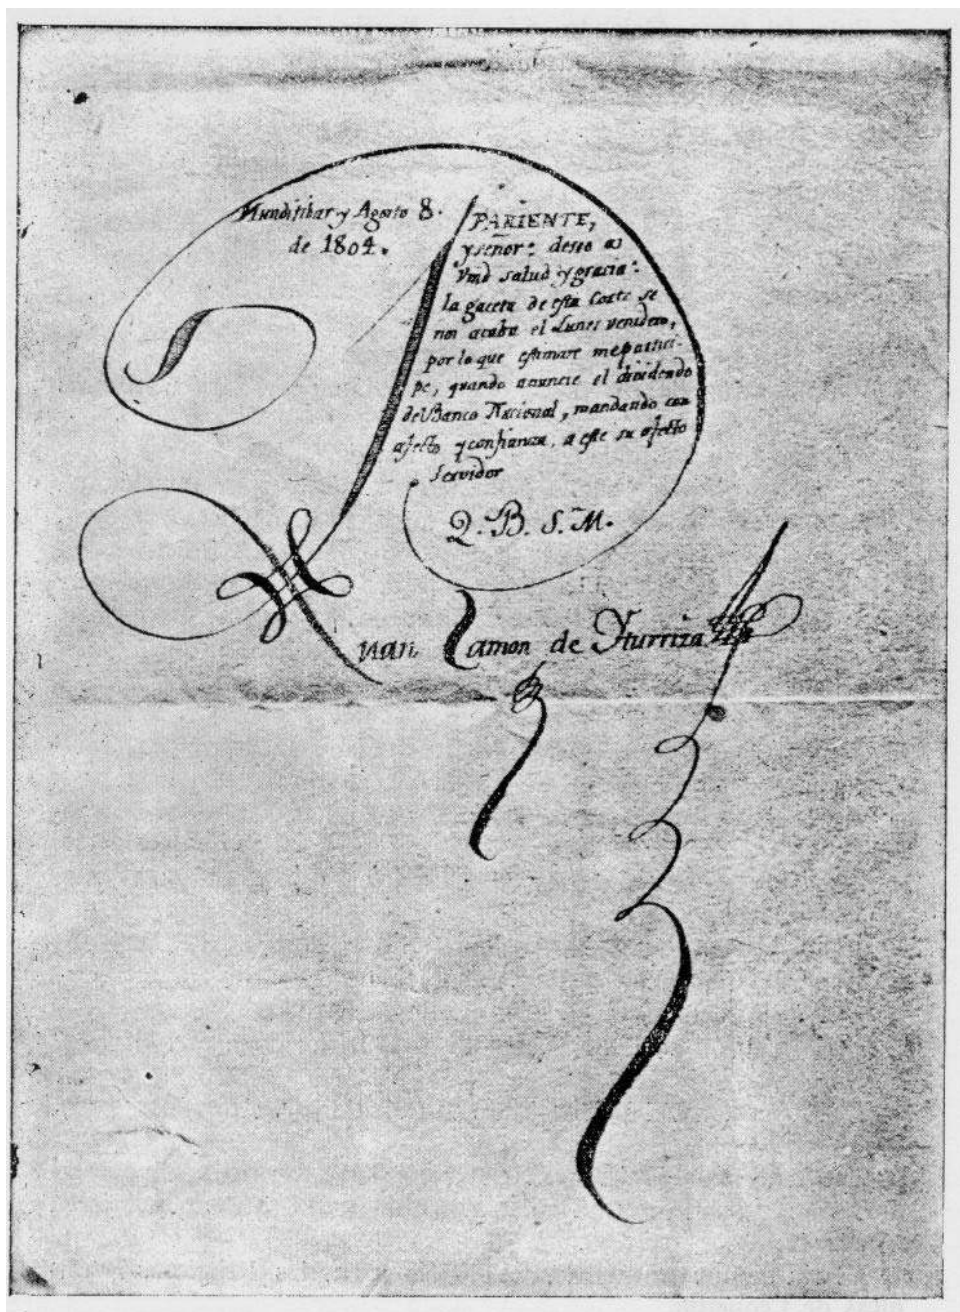 Munditibar y Agosto 8.
de 1804.
PARIENTE,
y señor: deseo a
Vmd salud y gracia:
la gaceta de esta Corte se
nos acaba el Lunes venidero,
por lo que estimare me partici-
pe, quando anuncie el dividendo
del Banco Nacional, mandando con
afecto y confianza, a este su afecto
servidor
Q. B. S. M.
Juan Ramon de Yturriza